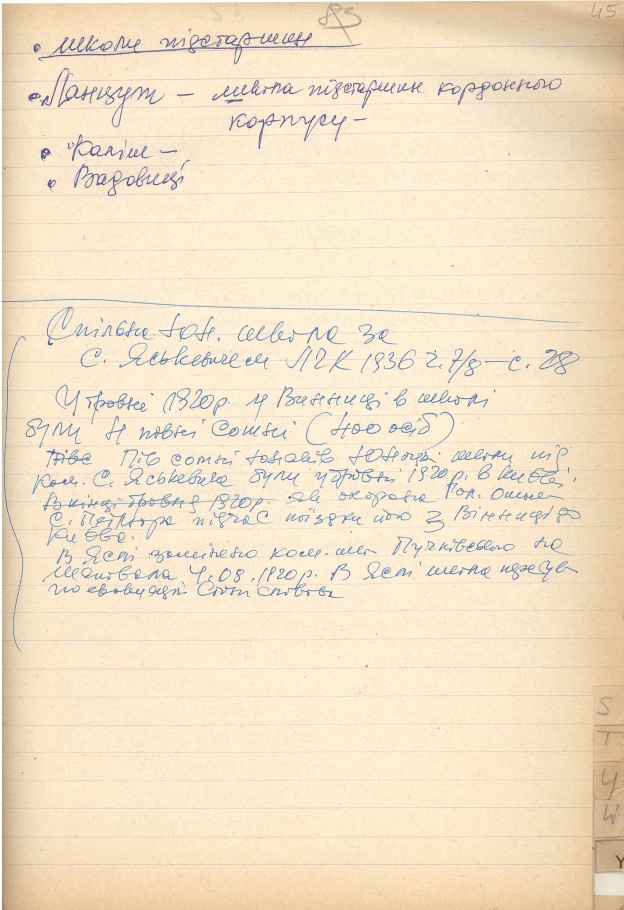 83
45
• школи підстаршин
• Ланцут – школа підстаршин кордонного
корпусу –
• Каліш –
• Вадовиці
Спільна Юн. школа за
С. Яськевичем ЛЧК 1936 ч. 7/8 – с. 28
У травні 1920 р. у Винниці в школі
були 4 повні сотні (400 осіб)
Пів сотні юнаків Юнацької школи під
ком. С. Яськевича були у травні 1920 р. в Києві.
В кінці травня 1920 р. як охорона Гол. Отам.
С. Петлюра підчас поїздки його з Вінниці до
Києва.
В Ясні замінено ком. шк. Пучківського на
Шаповала 4.08.1920 р. В Ясні школа
S
T
U
W
Y